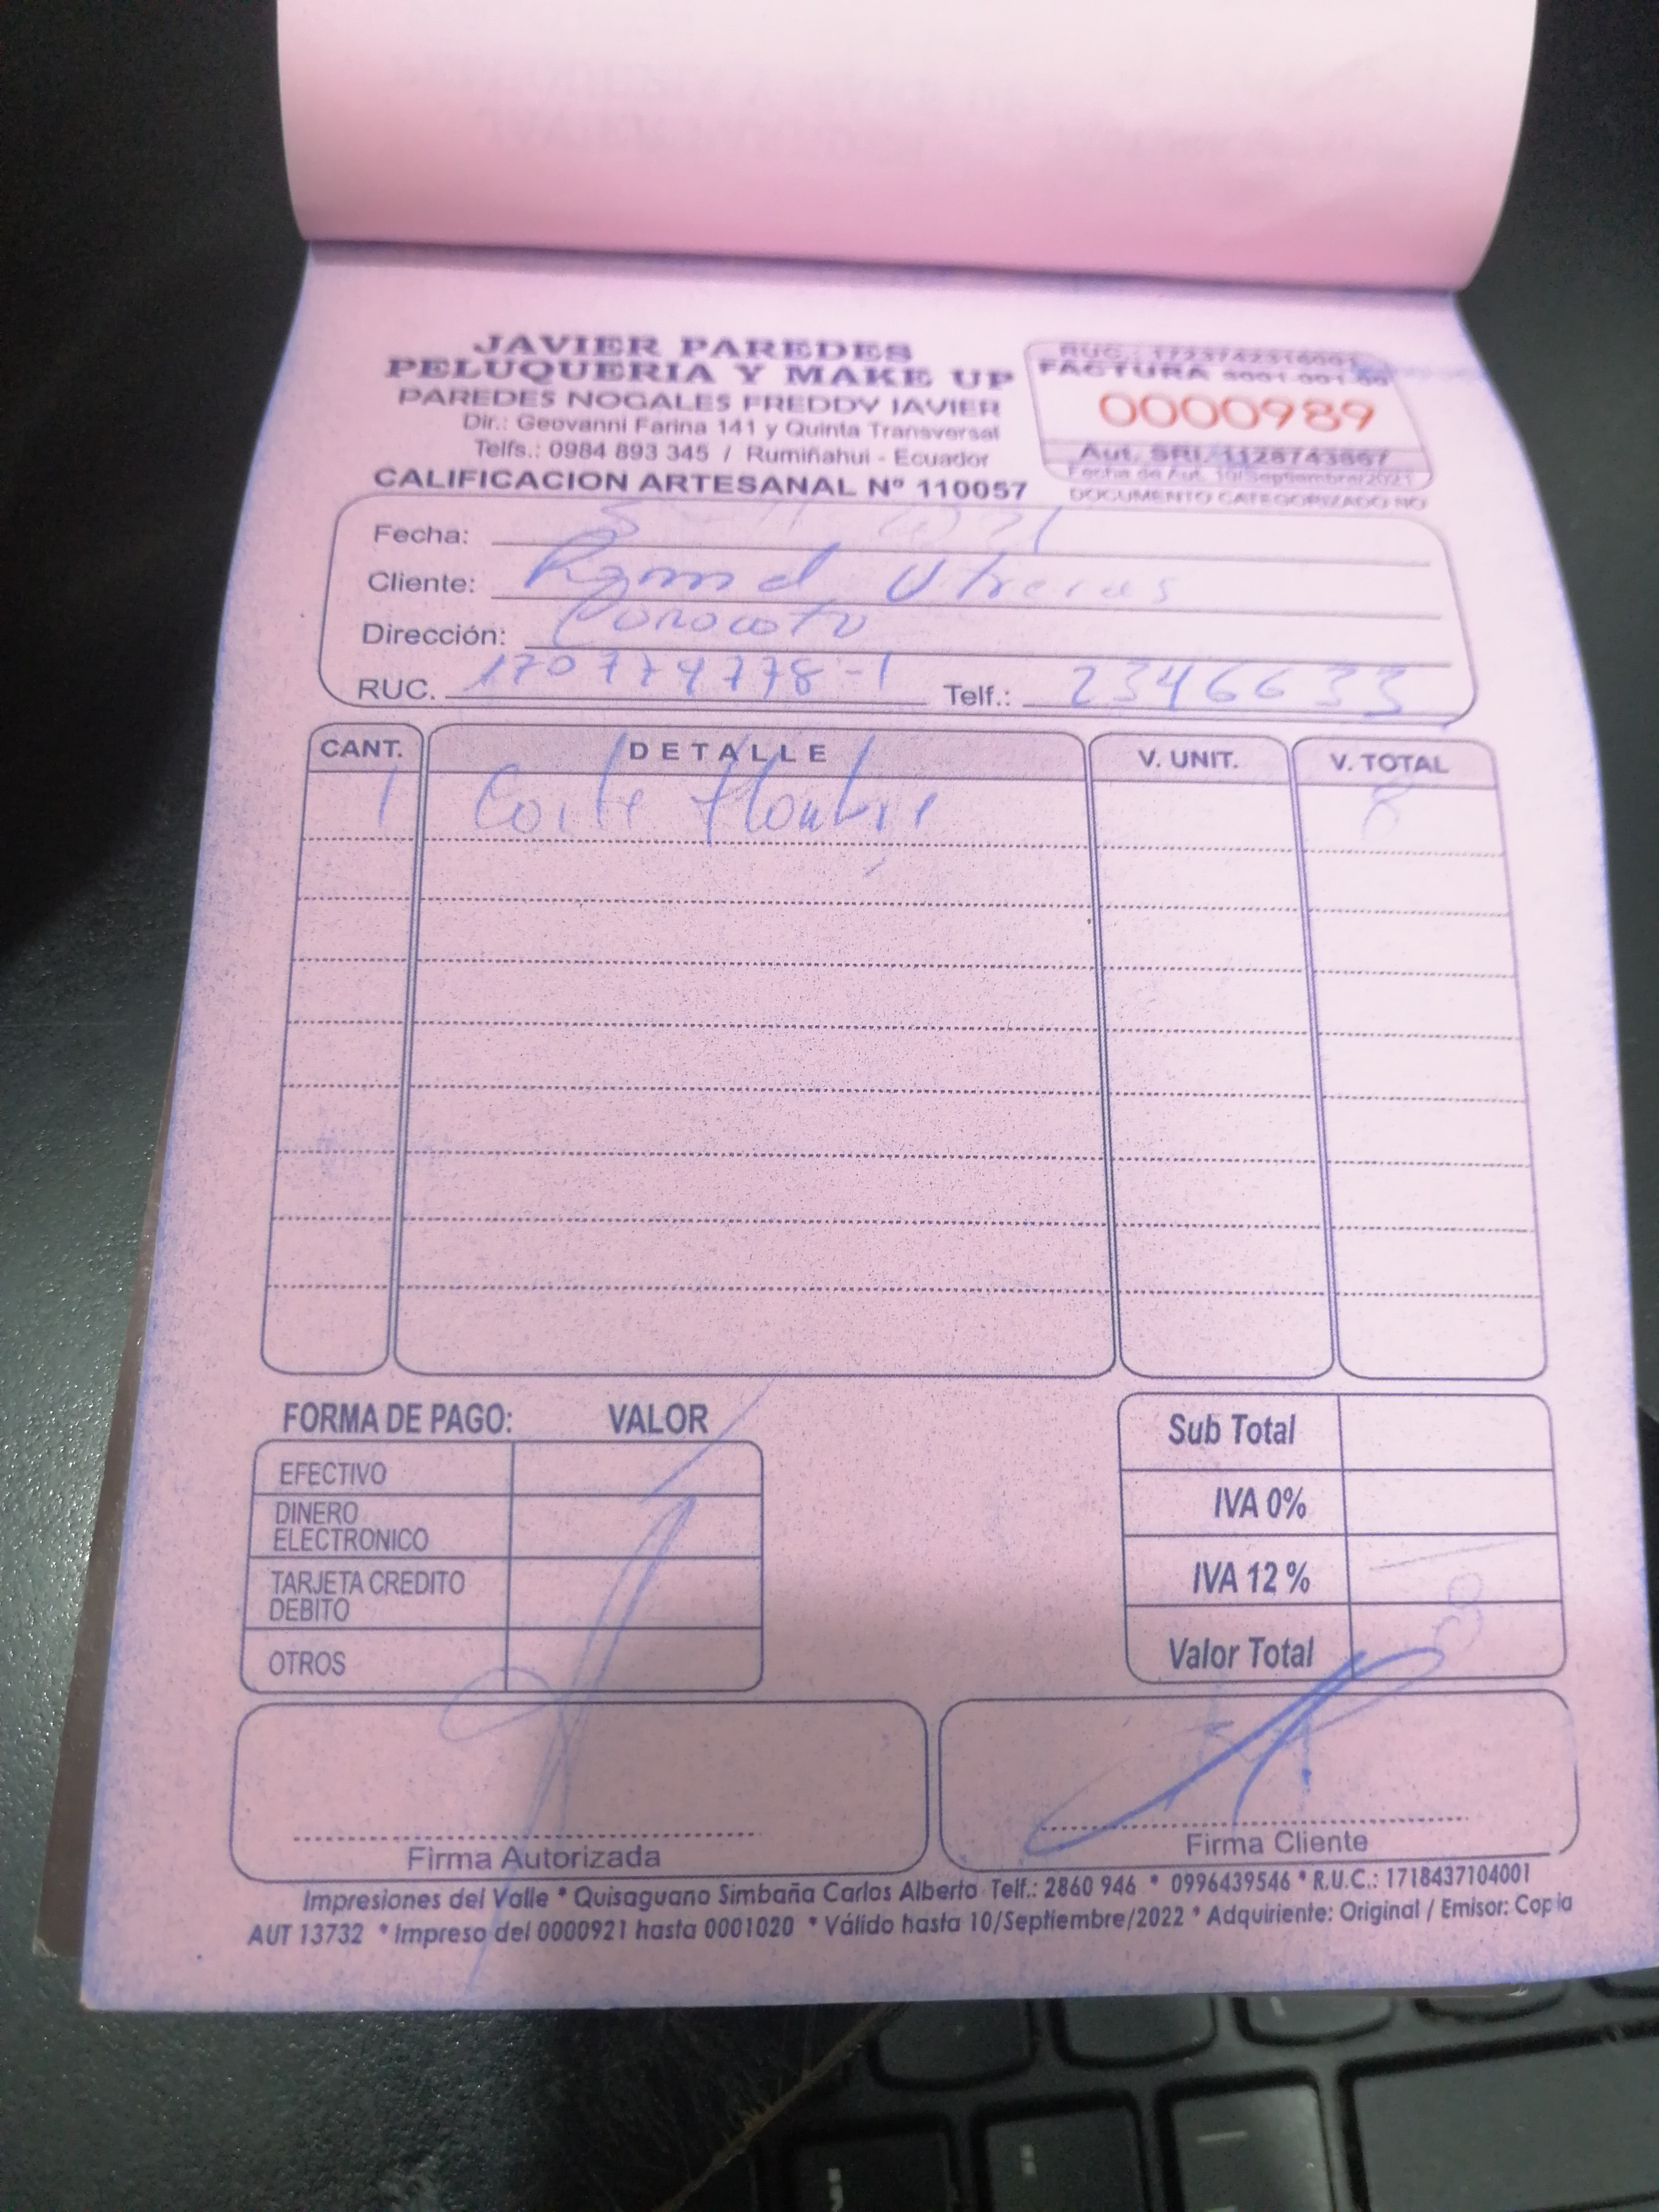 JAVIER PAREDES
PELUQUERIA Y MAKE UP
PAREDES NOGALES FREDDY JAVIER
Dir.: Geovanni Farina 141 y Quinta Transversal
Telfs.: 0984 893 345 / Rumiñahui - Ecuador
CALIFICACION ARTESANAL Nº 110057
RUC.:
FACTURA
0000989
Aut. SRI. 1128743867
Fecha de Aut. 10/Septiembre/2021
DOCUMENTO CATEGORIZADO NO
Fecha:
Cliente: Utreras
Dirección: Conocoto
RUC. 170774778-1 Telf.: 2346633
CANT. DETALLE V. UNIT. V. TOTAL
1 Corte Hombre 8
FORMA DE PAGO: VALOR
EFECTIVO
DINERO ELECTRONICO
TARJETA CREDITO DEBITO
OTROS
Sub Total
IVA 0%
IVA 12 %
Valor Total
Firma Autorizada
Firma Cliente
Impresiones del Valle * Quisaguano Simbaña Carlos Alberto Telf.: 2860 946 * 0996439546 * R.U.C.: 1718437104001
AUT 13732 * Impreso del 0000921 hasta 0001020 * Válido hasta 10/Septiembre/2022 * Adquiriente: Original / Emisor: Copia